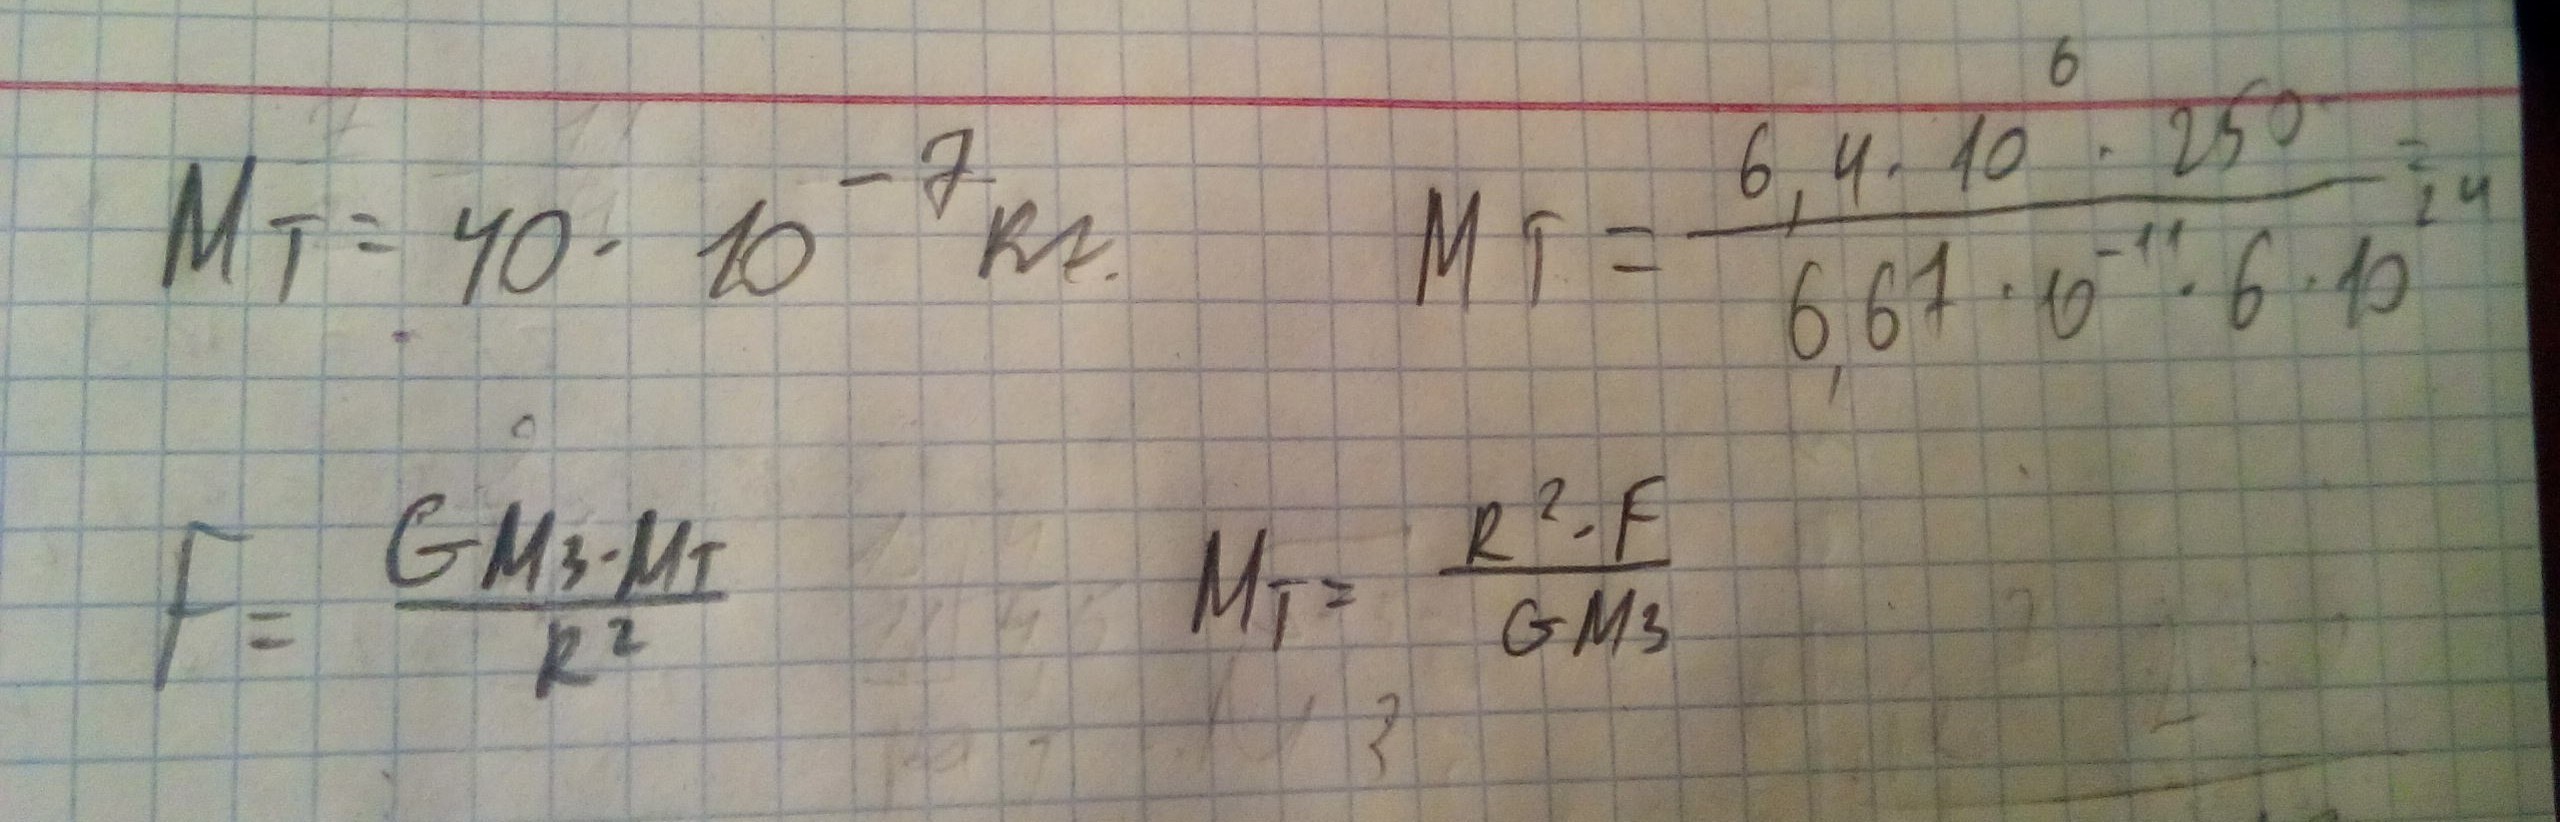 Mт = 40 · 10⁻⁷ кг. Mт = (6,4 · 10⁶ · 250) / (6,67 · 10⁻¹¹ · 6 · 10²⁴) =
F = (G Mз · Mт) / R² Mт = (R² · F) / (G Mз)